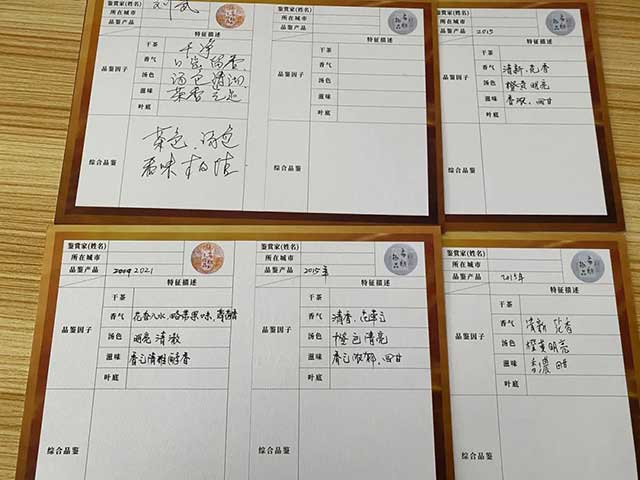 鉴赏家(姓名) 刘武
所在城市
品鉴产品
特征描述
特征描述
品鉴因子
干茶 干净
香气 口感 留香
汤色 汤色清润
滋味 茶香
叶底
干茶
香气
汤色
滋味
叶底
综合品鉴
茶色、汤色
香味
品鉴产品 2015
特征描述
品鉴因子
干茶
香气 清新、花香
汤色 橙黄明亮
滋味 香浓、回甘
叶底
综合品鉴
鉴赏家(姓名)
所在城市
品鉴产品 2009 2021
特征描述
品鉴因子
干茶
香气 花香入水、略带果味
汤色 明亮 清澈
滋味 香气清雅 醇香
叶底
综合品鉴
2015年
特征描述
干茶
香气 清香、花草
汤色 橙色 清亮
滋味 香气浓郁、回甘
叶底
鉴赏家(姓名)
所在城市
品鉴产品 2015年
特征描述
品鉴因子
干茶
香气 清新 花香
汤色 橙黄明亮
滋味 香浓 回甘
叶底
综合品鉴